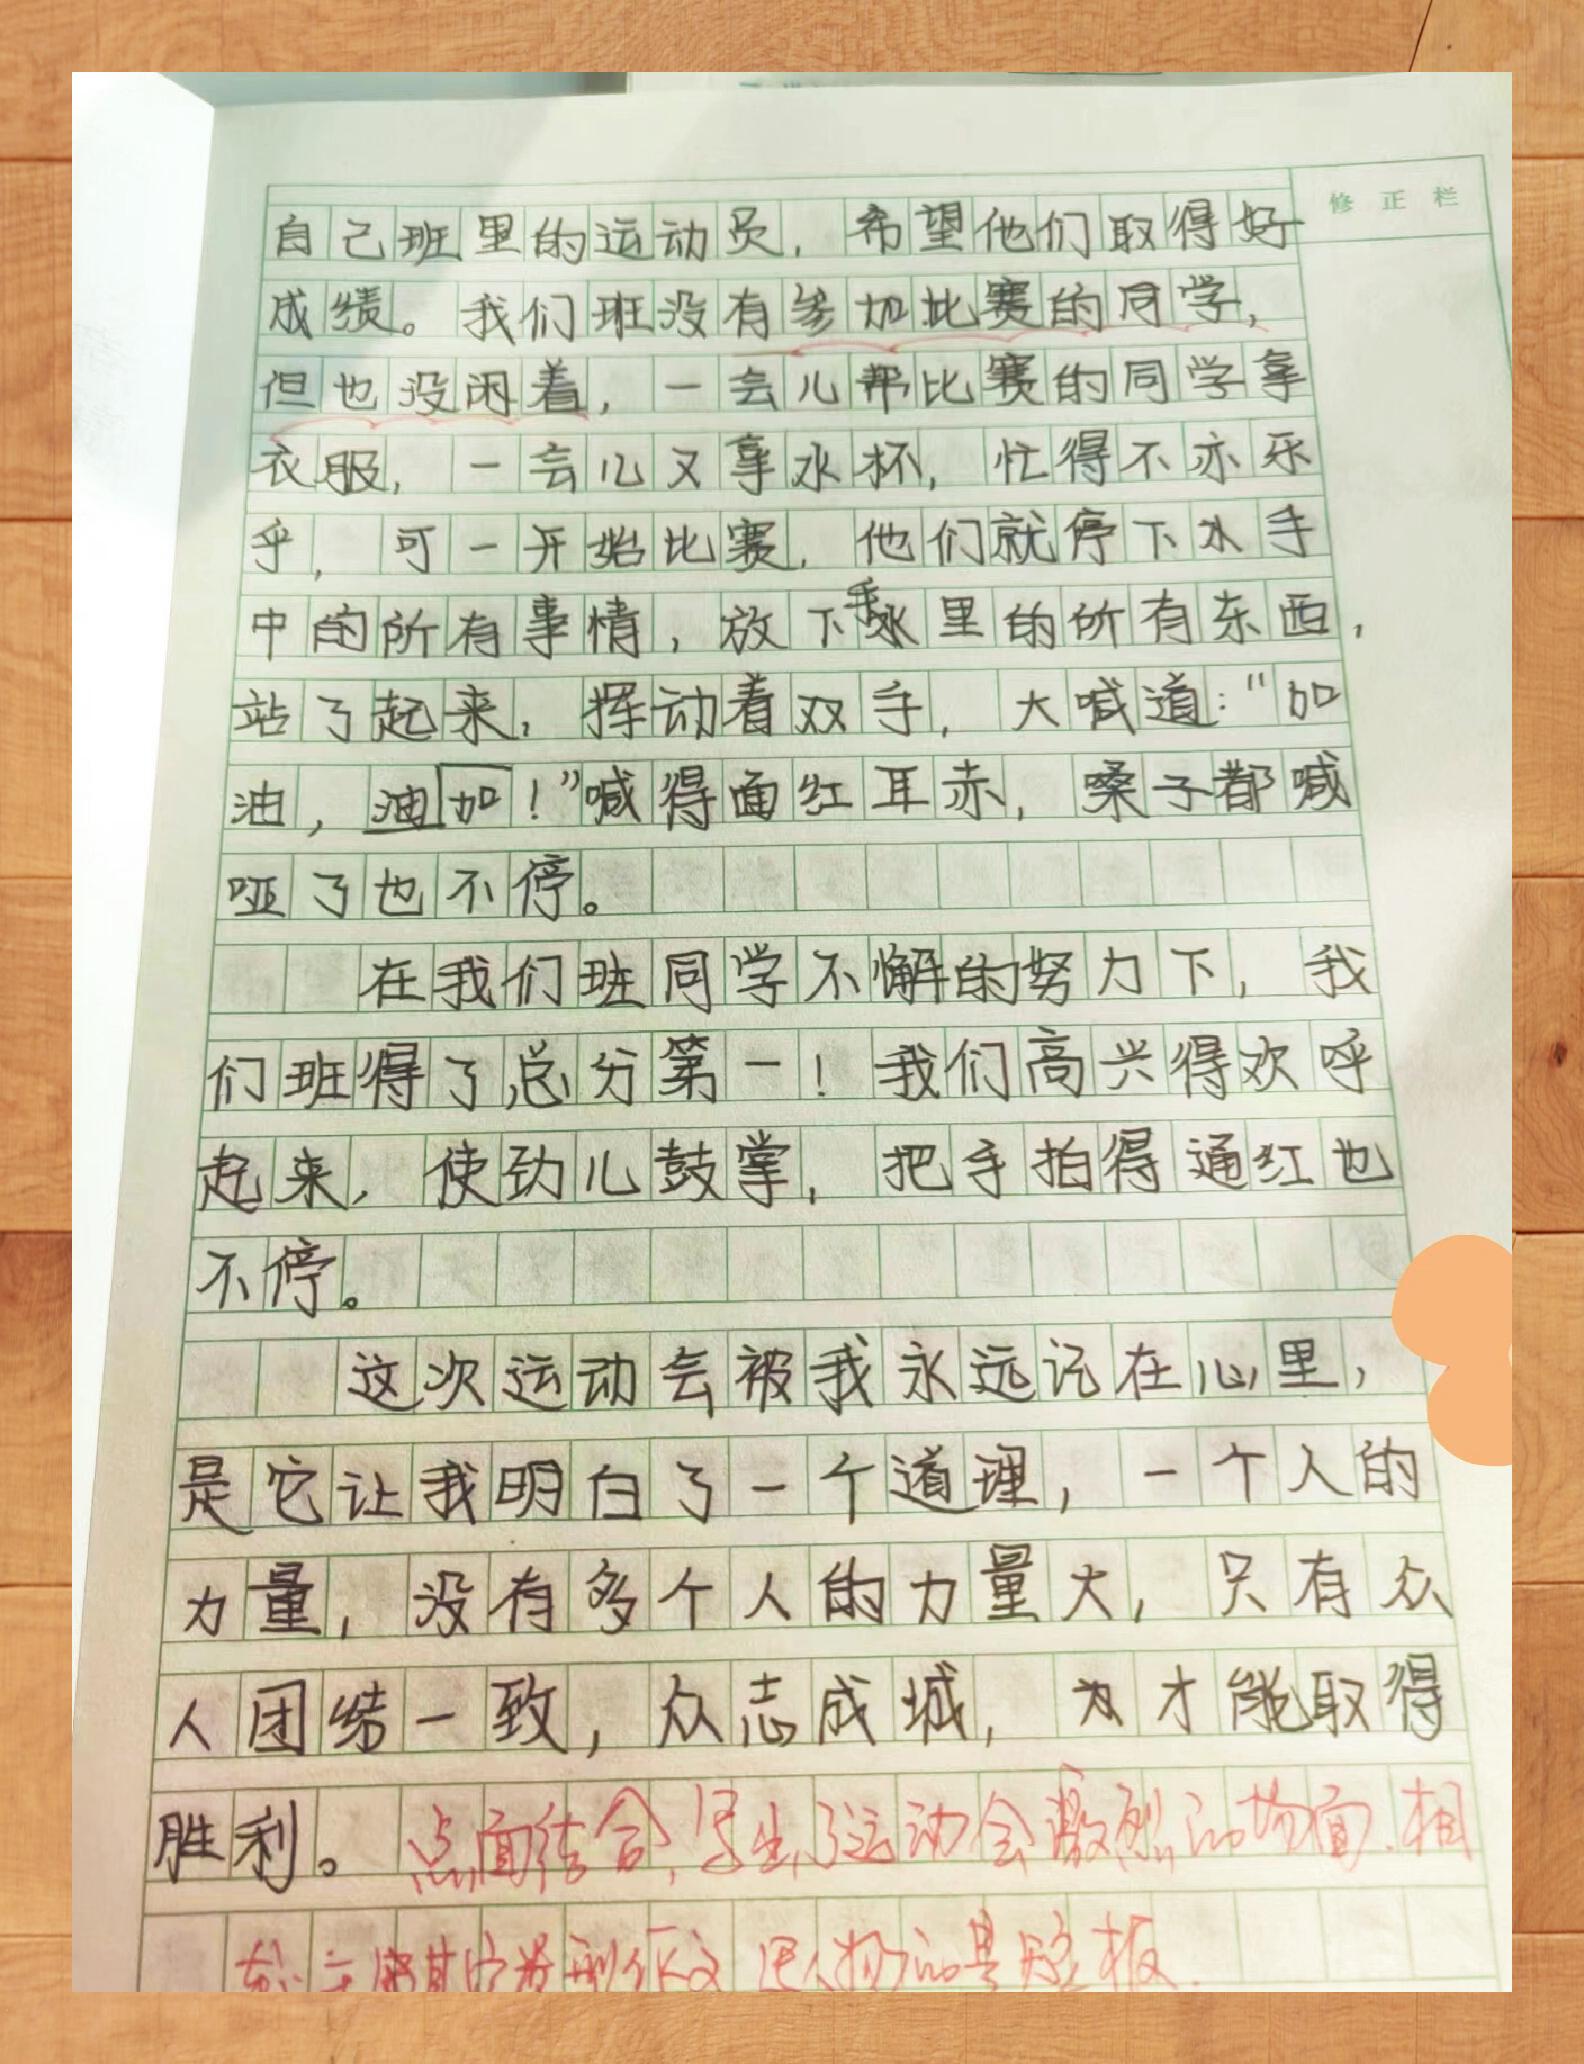 修正栏
自己班里的运动员，希望他们取得好
成绩。我们班没有参加比赛的同学，
但也没闲着，一会儿帮比赛的同学拿
衣服，一会儿又拿水杯，忙得不亦乐
乎，可一开始比赛，他们就停下水手
中的所有事情，放下手里的所有东西，
站了起来，挥动着双手，大喊道：“加
油，油加！”喊得面红耳赤，嗓子都喊
哑了也不停。
在我们班同学不懈的努力下，我
们班得了总分第一！我们高兴得欢呼
起来，使劲儿鼓掌，把手拍得通红也
不停。
这次运动会被我永远记在心里，
是它让我明白了一个道理，一个人的
力量，没有多个人的力量大，只有众
人团结一致，众志成城，才能取得
胜利。点面结合，写出了运动会激烈的场面.相